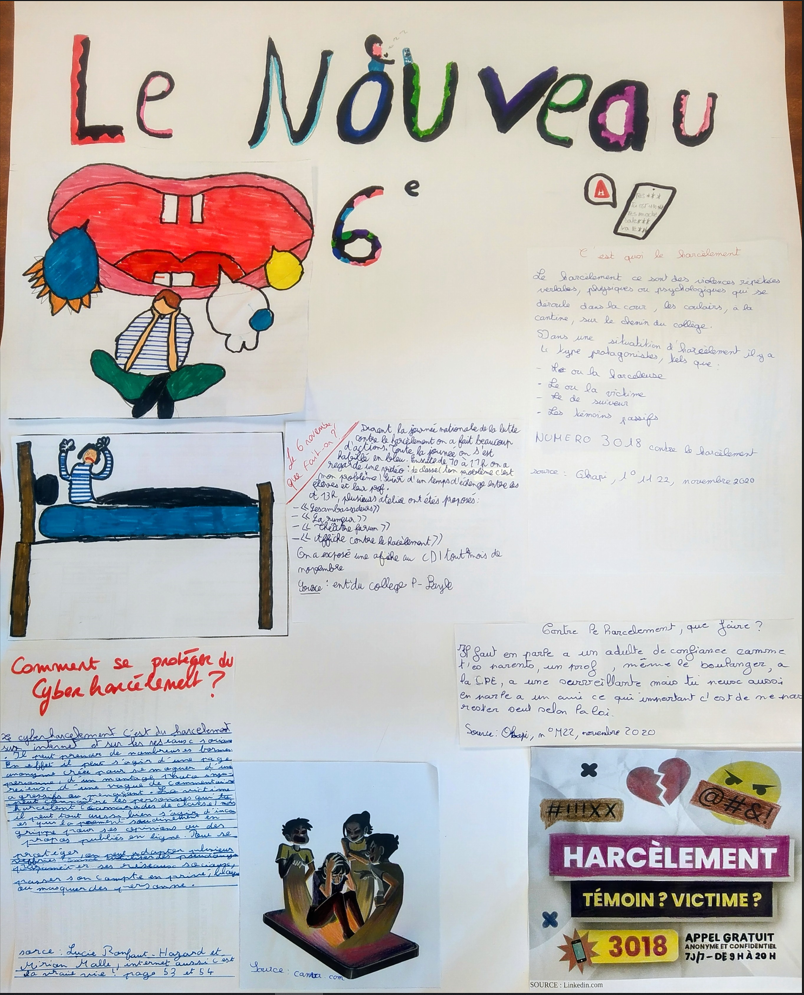 Le Nouveau
6e
A
C'est quoi le harcèlement
Le harcèlement ce sont des violences répétées
verbales, physiques ou psychologiques qui se
déroule dans la cour, les couloirs, à la
cantine, sur le chemin du collège.
Dans une situation d'harcèlement il y a
4 type protagonistes, tels que:
- Le ou la harceleuse
- Le ou la victime
- Le de suiveur
- Les témoins passifs
NUMERO 3018 contre le harcèlement
source: Okapi, 1° 1122, novembre 2020
Le 6 novembre
que fait on?
Durant, la journée nationale de la lutte
contre le harcèlement on a fait beaucoup
d'actions. Toute la journée on s'est
en bleu. Ensuite de 10 à 11h on a
regardé une vidéo: ta classe! ton problème c'est
mon problème! Suivi d'un temps d'échange entre les
élèves et leur prof.
à 13h, plusieurs atelier ont étés proposés:
- << Les ambassadeurs>>
- << La rumeur >>
- << Théâtre forum >>
- << Affiche contre le harcèlement>>
On a exposé une afiche au CDI tout mois de
novembre
Source: ent du college P-Bayle
Contre le harcelement, que faire?
Il faut en parle a un adulte de confiance comme
t'es parents, un prof, même le boulanger, a
la CPE, a une surveillante mais tu peux aussi
en parle a un ami ce qui important c'est de ne pas
rester seul selon la loi.
Source: Okapi, n°1122, novembre 2020
Comment se protéger du
Cyber harcèlement?
Le cyberharcèlement c'est du harcèlement
sur internet et sur les réseaux sociaux
Il peut prendre de nombreuses formes
En effet il peut s'agir d'une page
anonyme créée pour se moquer d'une
personne d'un montage photo
d'une vague de commentaires
il peut tout aussi bien s'agir
groupe pour ses opinions ou des
propos publiés en ligne. Pour se
protéger
passer son compte en privé, bloquer
ou masquer des personne.
sorce: Lucie Ronfaut-Hazard et
Mirion Malle, internet aussi c'est
la vraie vie! page 53 et 54
Source: canva.com
#!!!XX
@#&!
HARCÈLEMENT
TÉMOIN ? VICTIME ?
3018
APPEL GRATUIT
ANONYME ET CONFIDENTIEL
7J/7 - DE 9H À 20H
SOURCE : Linkedin.com